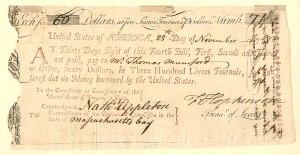 for 60 Dollars, at five Livres Tournois Dollar, Numb.
United States of AMERICA, 25 Day of November
AT Thirty Days Sight of this Fourth Bill, First, Second and
not paid, pay to Mr. Thomas Mumford
or Order, Dollars, in Three Hundred Livres Tournois,
for Money borrowed by the United States.
To the Commissioner or Commissioners of the
United States of America, at Paris.
Countersigned, Nath. Appleton
Commissioner of the Continental Loan-Office in the
State of Massachusetts Bay
F Hopkinson
Treas. of Loans